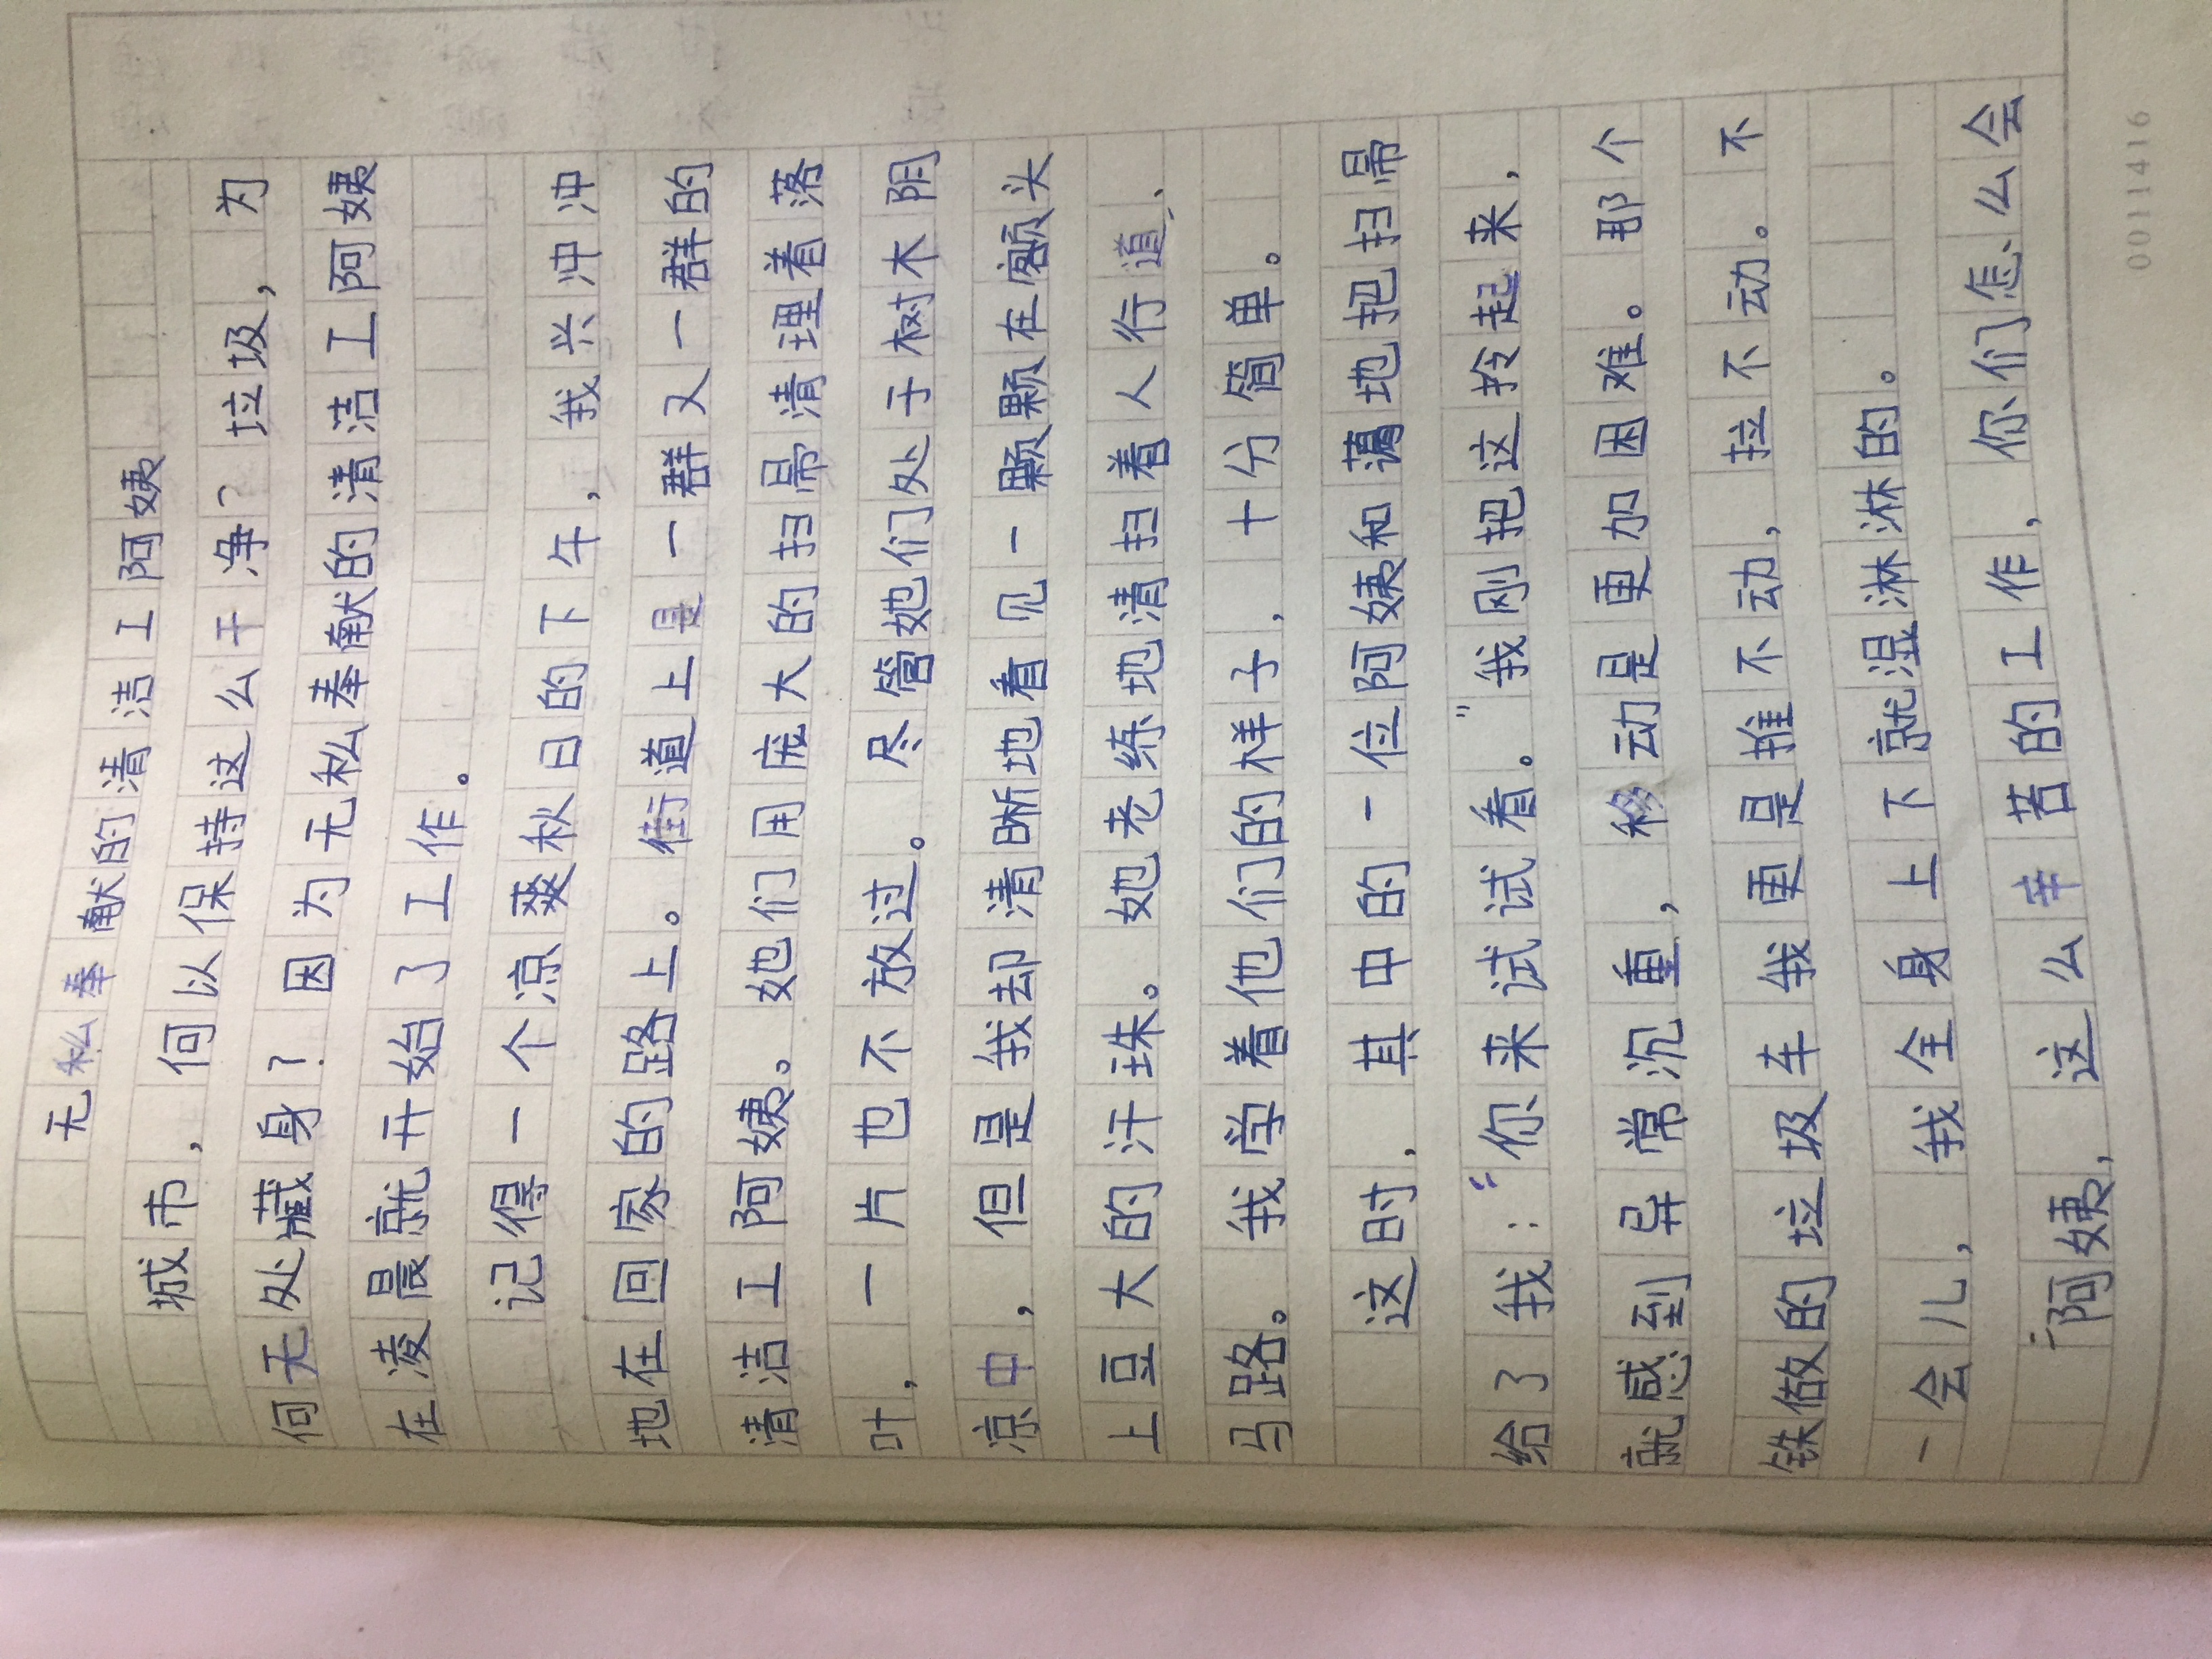 无私奉献的清洁工阿姨
城市，何以保持这么干净？垃圾，为
何无处藏身？因为无私奉献的清洁工阿姨
在凌晨就开始了工作。
记得一个凉爽秋日的下午，我兴冲冲
地在回家的路上。街道上是一群又一群的
清洁工阿姨。她们用庞大的扫帚清理着落
叶，一片也不放过。尽管她们处于树木阴
凉中，但是我却清晰地看见一颗颗在额头
上豆大的汗珠。她老练地清扫着人行道、
马路。我学着他们的样子，十分简单。
这时，其中的一位阿姨和蔼地把扫帚
给了我：“你来试试看。”我刚把这拎起来，
就感到异常沉重，移动是更加困难。那个
铁做的垃圾车我更是推不动，拉不动。不
一会儿，我全身上下就湿淋淋的。
“阿姨，这么辛苦的工作，你们怎么会
00114 16